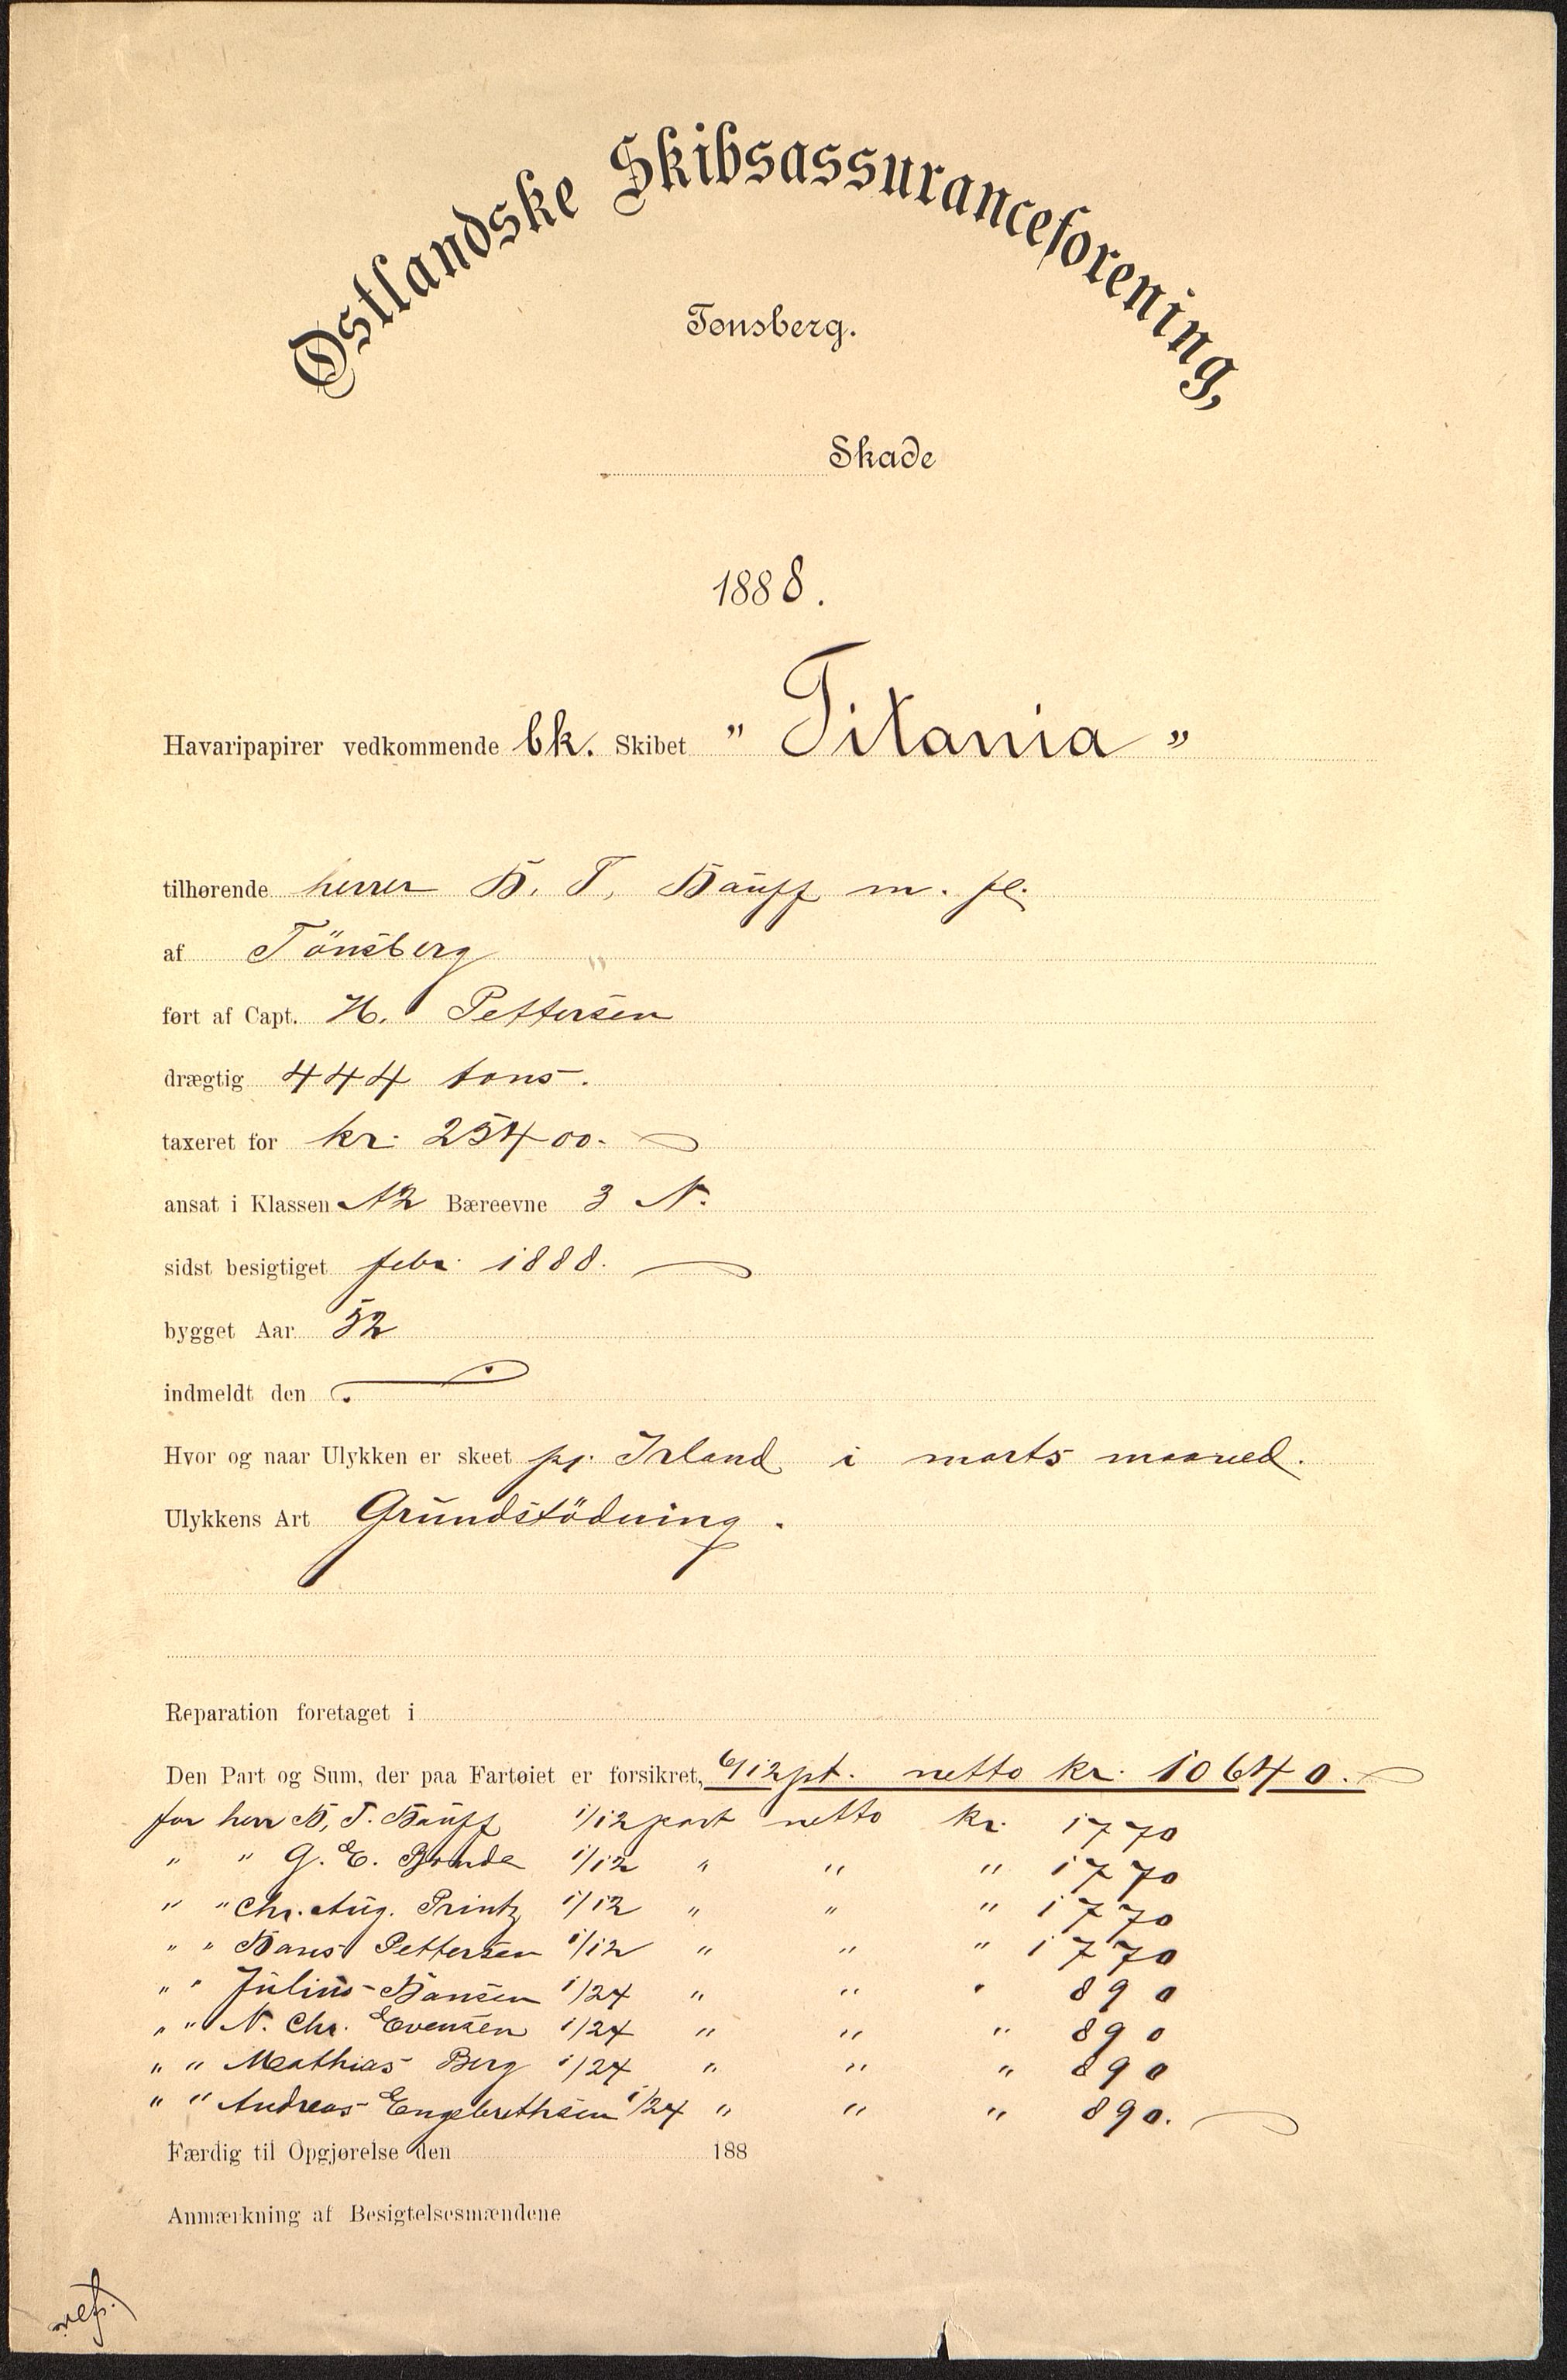 Østlandske Skibsassuranceforening,
Tønsberg.
Skade
1888.
Havaripapirer vedkommende bk. Skibet " Titania "
tilhørende herrer H. T. Hauff m. fl.
af Tönsberg "
ført af Capt. H. Pettersen
drægtig 444 tons.
taxeret for kr. 25400.
ansat i Klassen A2 Bæreevne 3 N.
sidst besigtiget febr. 1888.
bygget Aar 52
indmeldt den
Hvor og naar Ulykken er skeet pr. Irland i marts maaned.
Ulykkens Art Grundstödning.
Reparation foretaget i
Den Part og Sum, der paa Fartøiet er forsikret, 6/12 pt. netto kr. 10640.
for herr H. T. Hauff 1/12 part netto kr. 1770
" " G. E. Bonde 1/12 " " " 1770
" " Chr. Aug. Printz 1/12 " " " 1770
" " Hans Pettersen 1/12 " " " 1770
" " Julius Hansen 1/24 " " " 890
" " N. Chr. Evensen 1/24 " " " 890
" " Mathias Berg 1/24 " " " 890
" " Andreas Engebrethsen 1/24 " " " 890.
Færdig til Opgjørelse den 188
Anmærkning af Besigtelsesmændene